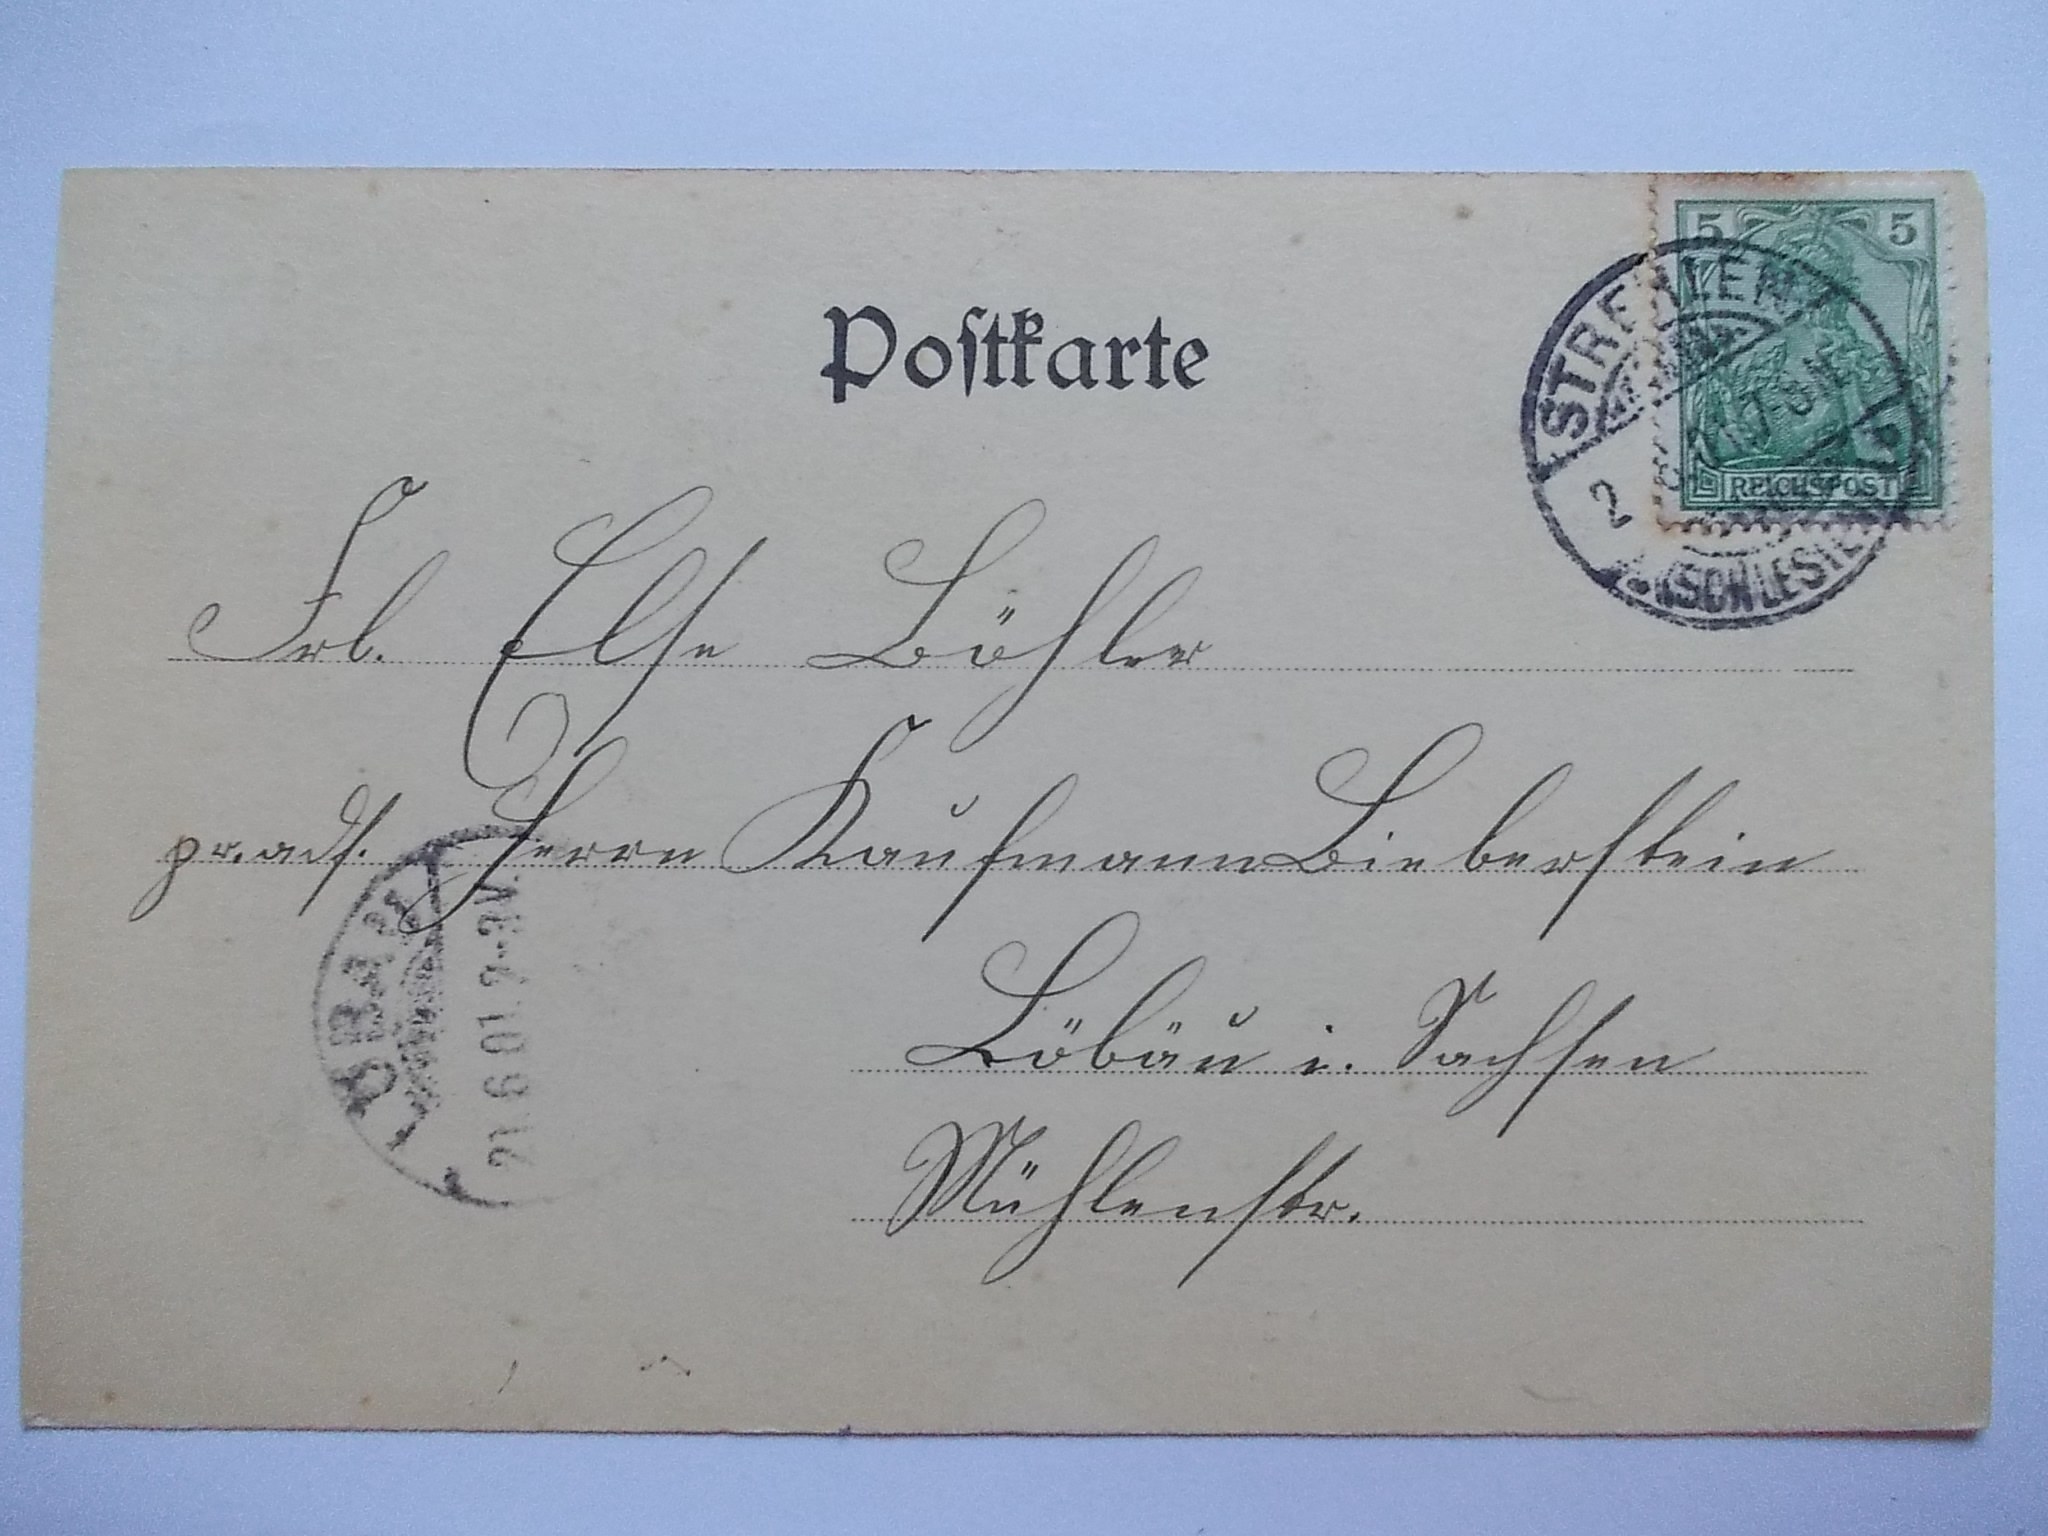 Postkarte
5 5
REICHSPOST
STREHLEN
(SCHLESIEN)
Frl. Else Böhler
pr. ads. Herrn Kaufmann Bieberstein
Löbau i. Sachsen
Mühlenstr.
21.6.01.2-3V.